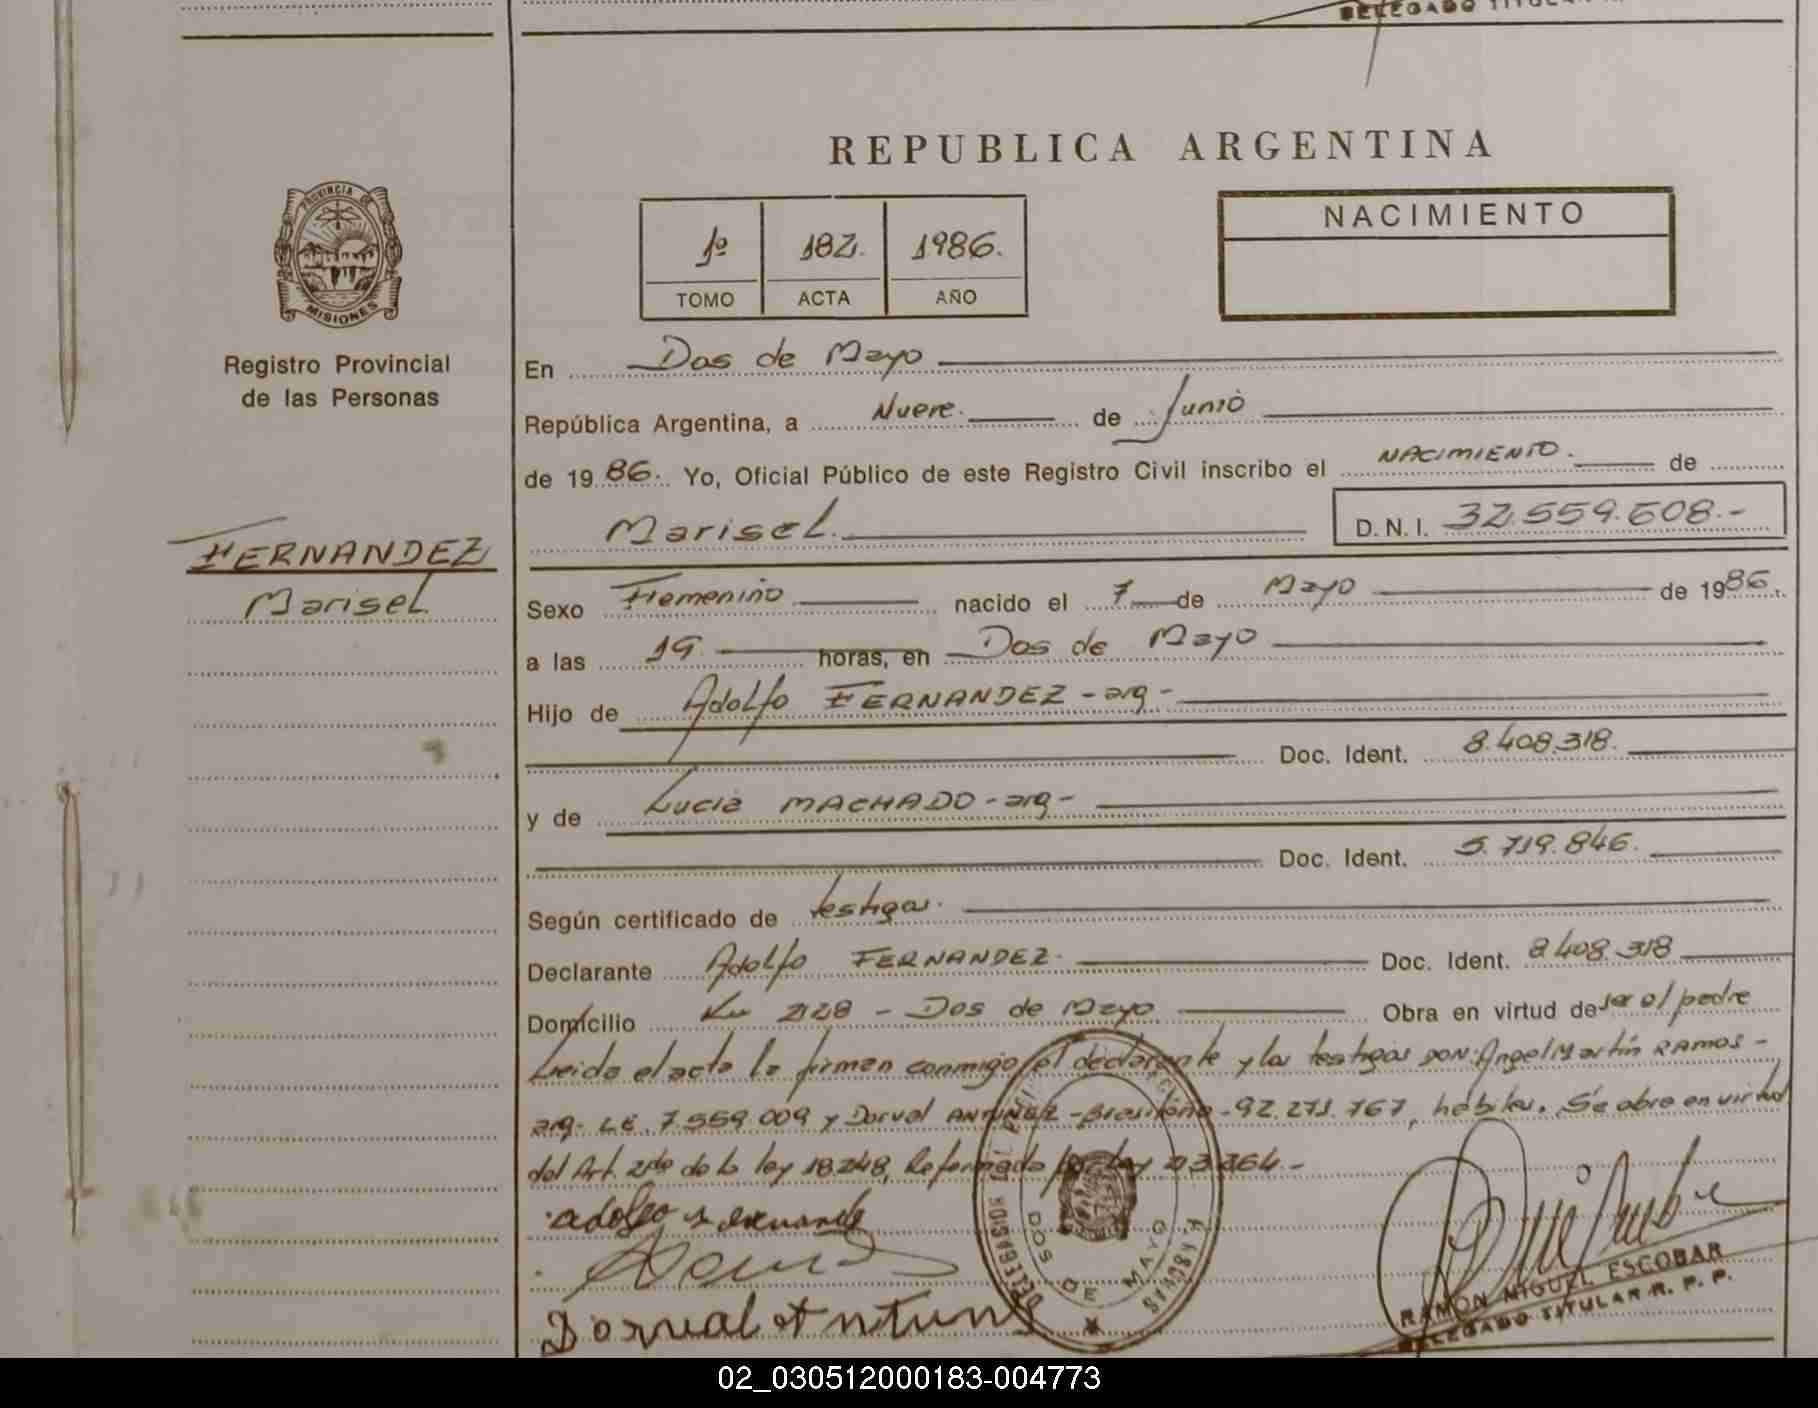 DELEGADO TITULAR
REPUBLICA ARGENTINA
PROVINCIA DE
MISIONES
Registro Provincial
de las Personas
FERNANDEZ
Marisel
1º 182. 1986.
TOMO ACTA AÑO
NACIMIENTO
En Dos de Mayo
República Argentina, a Nueve. de Junio
de 1986. Yo, Oficial Público de este Registro Civil inscribo el NACIMIENTO. de
Marisel. D.N.I. 32.559.608.-
Sexo Femenino nacido el 7 de Mayo de 1986.
a las 19 horas, en Dos de Mayo
Hijo de Adolfo FERNANDEZ - arg -
Doc. Ident. 8.408.318.
y de Lucia MACHADO - arg -
Doc. Ident. 5.719.846.
Según certificado de testigos.
Declarante Adolfo FERNANDEZ. Doc. Ident. 8408.318
Domicilio Km 228 - Dos de Mayo Obra en virtud de ser el padre
Leida el acta la firman conmigo el declarante y los testigos DON: Angel Martín RAMOS -
arg - LE. 7.559.009 y Dorval ANTUNEZ - Brasileño - 92.271.767, hábiles. Se obra en virtud
del Art. 2do de la ley 18.248, Reformado por Ley 23.264.-
DELEGACION
DOS DE MAYO
MISIONES
Dorval Antunes
RAMON MIGUEL ESCOBAR
DELEGADO TITULAR R. P. P.
02_030512000183-004773